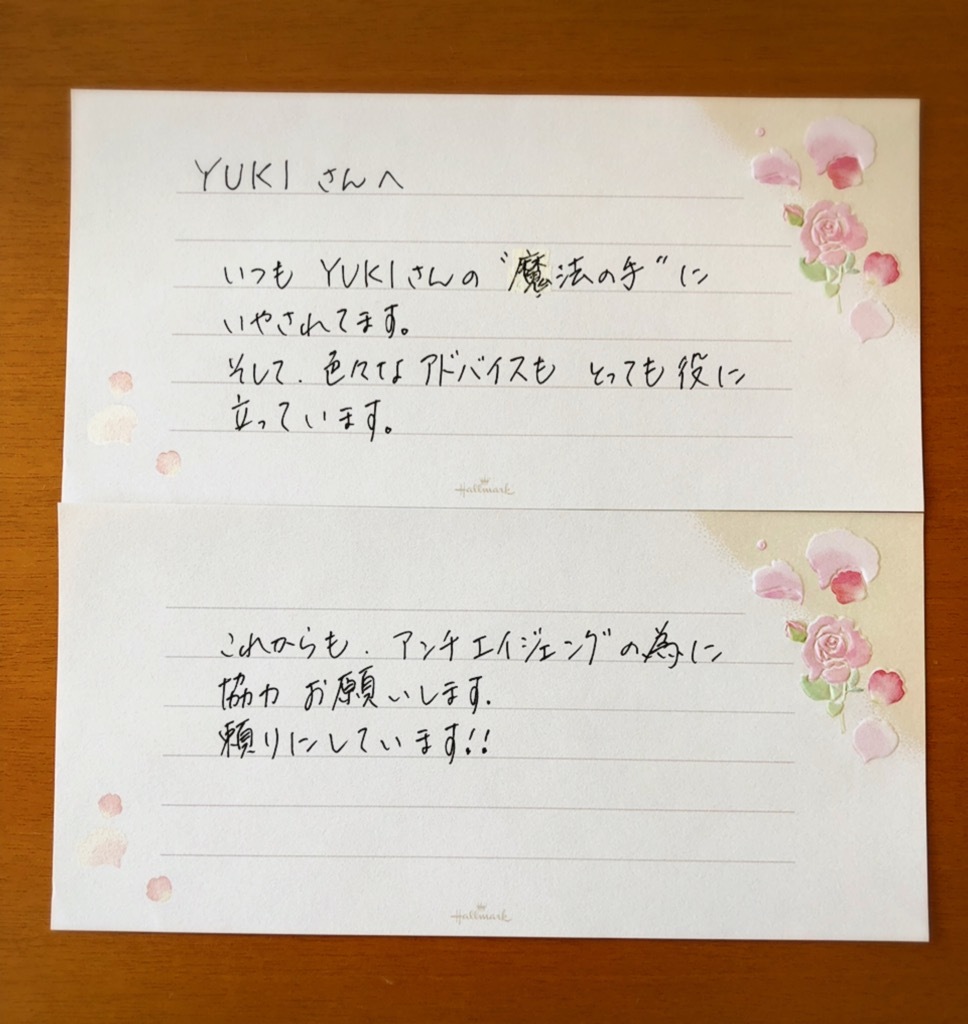 YUKI さんへ
いつも YUKIさんの "魔法の手" に
いやされてます。
そして、色々なアドバイスも とっても役に
立っています。
Hallmark
これからも、アンチエイジェングの為に
協力 お願いします。
頼りにしています!!
Hallmark